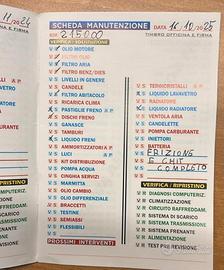 11/2024
SCHEDA MANUTENZIONE DATA 16.10.2025
KM. 215000 TIMBRO OFFICINA E FIRMA
VERIFICA - SOSTITUZIONE
OLIO MOTORE
FILTRO OLIO
FILTRO ARIA
FILTRO BENZ/DIES
LIVELLI IN GENERE
CANDELE
FILTRO ABITACOLO
RICARICA CLIMA
PASTIGLIE FRENO
DISCHI FRENO
GANASCE
TAMBURI
LIQUIDO FRENI
AMMORTIZZATORI A P
LUCI A P
KIT DISTRIBUZIONE
POMPA ACQUA
CINGHIA SERVIZI
MARMITTA
OLIO CAMBIO
OLIO DIFFERENZIALE
BRACCETTI
TESTINE
SEMIASSI
FLESSIBILI
PROSSIMI INTERVENTI
V S TERGICRISTALLI A P
V S LIQUIDO LAVAVETRO
V S RADIATORE
V S LIQUIDO RADIATORE
V S VENTOLA ARIA
V S CANDELETTE
V S POMPA CARBURANTE
V S INIETTORI
V S BATTERIA
FRIZIONE
E CHIT
COMPLETO
VERIFICA / RIPRISTINO
V R DIAGNOSI COMPUTERIZ.
V R CLIMATIZZAZIONE
V R CIRCUITO RAFFREDDAM.
V R SISTEMA DI SCARICO
V R SISTEMA TRASMISSIONE
V R SISTEMA FRENANTE
V R ALIMENTAZIONE
V R TEST PRE REVISIONE